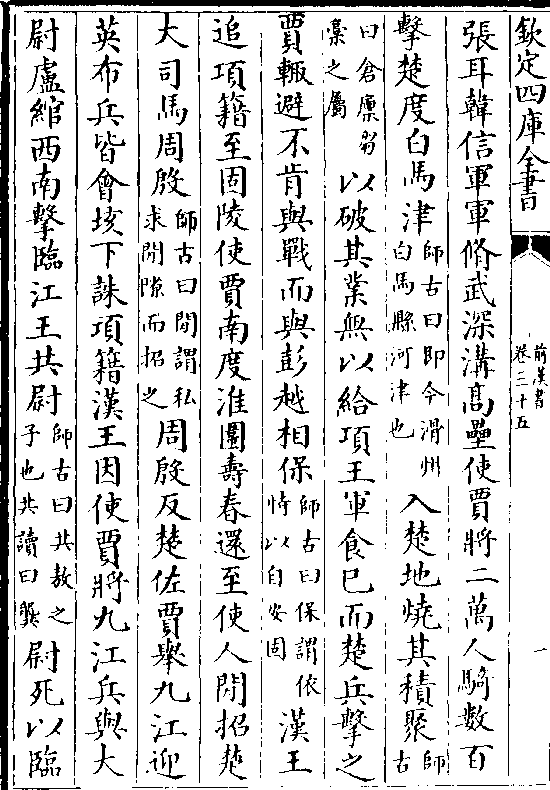 欽定四庫全書
前漢書
卷三十五
一
張耳韓信軍軍脩武深溝髙壘使賈將二萬人騎數百
擊楚度白馬津師古曰即今滑州白馬縣河津也入楚地燒其積聚師古
曰倉廪芻藁之屬以破其業無以給項王軍食已而楚兵擊之
賈輙避不肯與戰而與彭越相保師古曰保謂依恃以自安固漢王
追項籍至固陵使賈南度淮圍壽春還至使人閒招楚
大司馬周殷師古曰閒謂私求閒隙而招之周殷反楚佐賈舉九江迎
英布兵皆會垓下誅項籍漢王因使賈將九江兵與大
尉盧綰西南擊臨江王共尉師古曰共敖之子也共讀曰龔尉死以臨